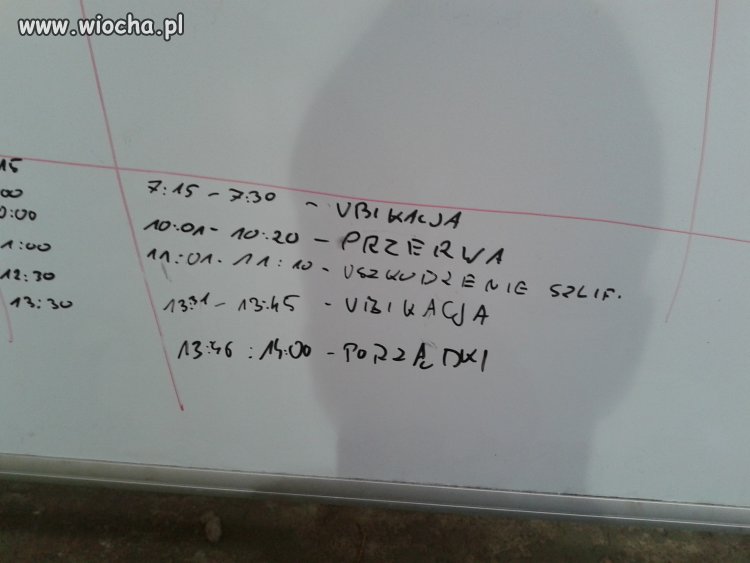 www.wiocha.pl
15
00
0:00
1:00
12:30
13:30
7:15 - 7:30 - UBIKACJA
10:01 - 10:20 - PRZERWA
11:01 - 11:10 - USZKODZENIE SZLIF.
13:31 - 13:45 - UBIKACJA
13:46 : 14:00 - PORZĄDKI